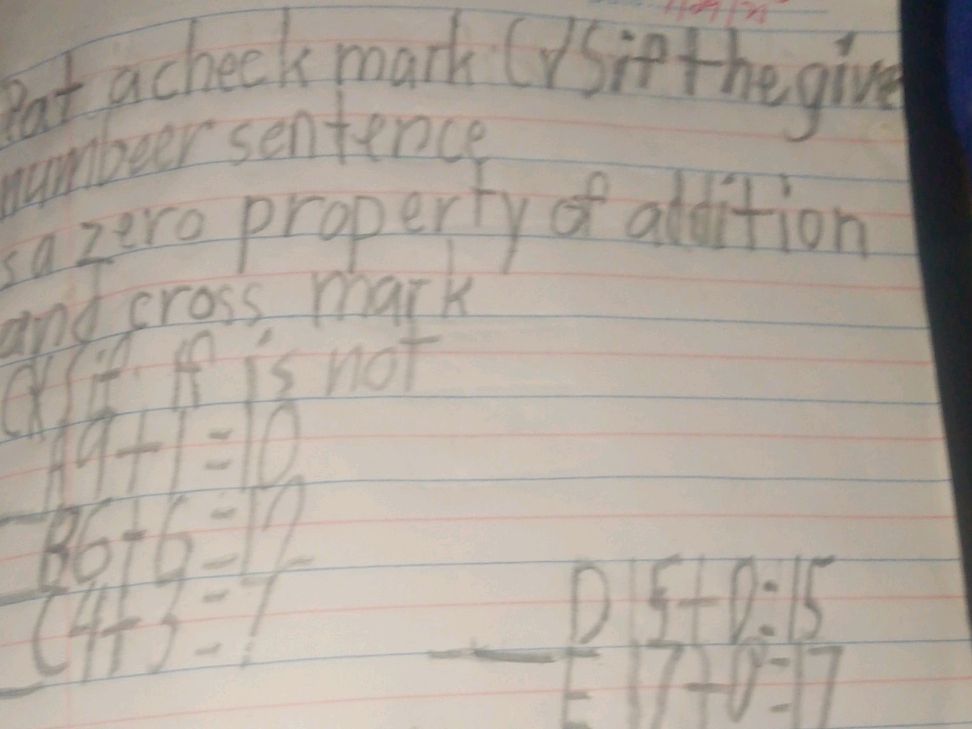 Pat a check mark (√) if the give
numbeer sentence
s a zero property of addition
and cross mark
(X) if it is not
A 9+1=10
B 6+6=12
C 4+3=7
D 15+0=15
E 17+0=17